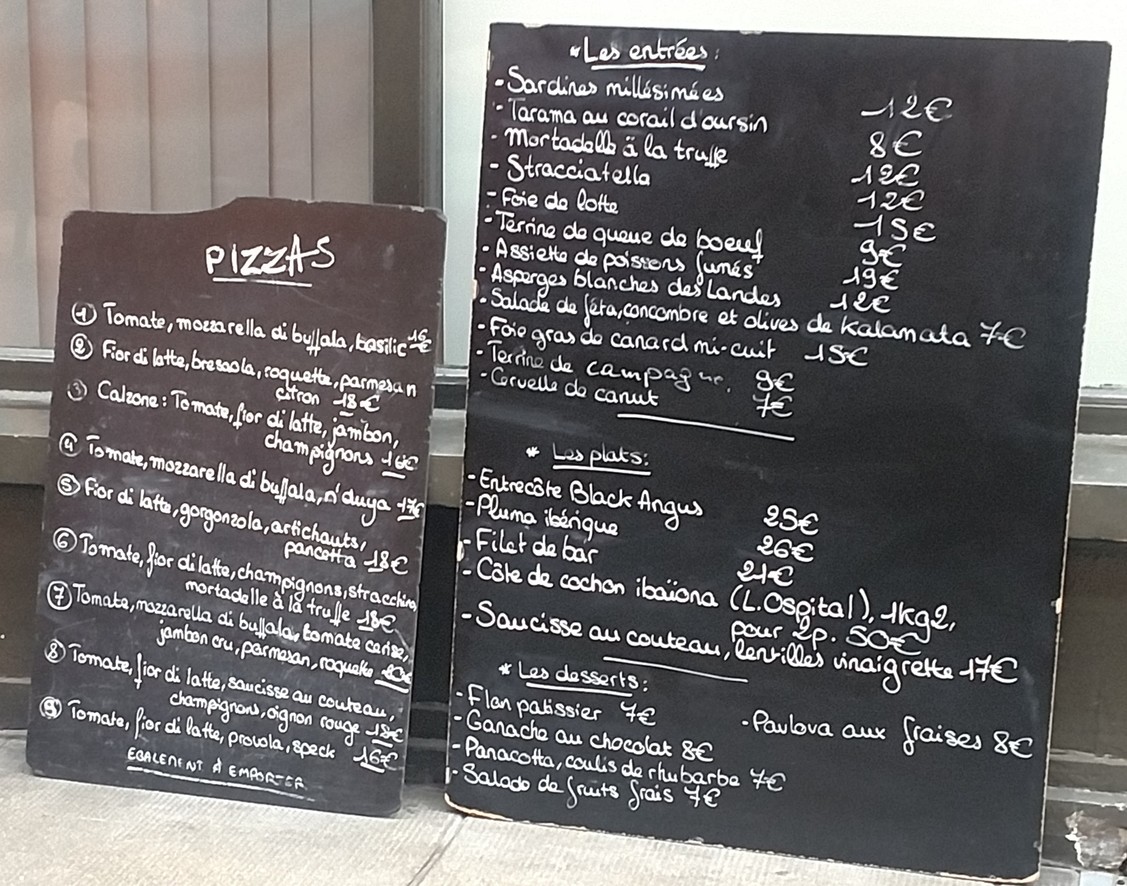 PIZZAS
① Tomate, mozzarella di buffala, basilic 16€
② Fior di latte, bresaola, roquette, parmesan
citron 18€
③ Calzone : Tomate, fior di latte, jambon,
champignons 16€
④ Tomate, mozzarella di buffala, n'duya 17€
⑤ Fior di latte, gorgonzola, artichauts,
pancetta 18€
⑥ Tomate, fior di latte, champignons, stracchino,
mortadelle à la truffe 18€
⑦ Tomate, mozzarella di buffala, tomate cerise,
jambon cru, parmesan, roquette 20€
⑧ Tomate, fior di latte, saucisse au couteau,
champignons, oignon rouge 18€
⑨ Tomate, fior di latte, provola, speck 16€
EGALEMENT À EMPORTER
* Les entrées :
- Sardines millésimées 12€
- Tarama au corail d'oursin 8€
- Mortadelle à la truffe 12€
- Stracciatella 12€
- Foie de lotte 15€
- Terrine de queue de boeuf 9€
- Assiette de poissons fumés 19€
- Asperges blanches des Landes 12€
- Salade de féta, concombre et olives de Kalamata 7€
- Foie gras de canard mi-cuit 15€
- Terrine de campagne. 9€
- Cervelle de canut 7€
* Les plats :
- Entrecôte Black Angus 25€
- Pluma ibérique 26€
- Filet de bar 21€
- Côte de cochon ibaïona (L.Ospital), 1kg2,
pour 2p. 50€
- Saucisse au couteau, lentilles vinaigrette 17€
* Les desserts :
- Flan patissier 7€
- Ganache au chocolat 8€
- Panacotta, coulis de rhubarbe 7€
- Salade de fruits frais 7€
- Pavlova aux fraises 8€